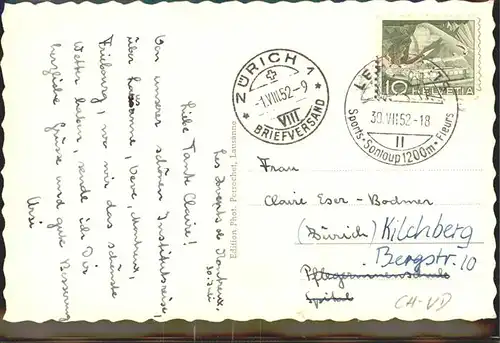 Les Avants s. Montreux,
30.7.52
Liebe Tante Claire!
Von unserer schönen Institutsreise,
über Lausanne, Vevey, Montreux,
Fribourg, wo wir das schönste
Wetter haben, sende ich Dir
herzliche Grüsse und gute Besserung
Ursi
Edition Phot. Perrochet, Lausanne
ZÜRICH 1
-1.VIII.52-9
VIII
BRIEFVERSAND
10 HELVETIA
30.VII.52-18
II
Sports • Sonloup 1200m • Fleurs
Frau
Claire Eser-Bodmer
(Zürich) Kilchberg
Bergstr. 10
Pflegerinnenschule
Spital
CH-VD